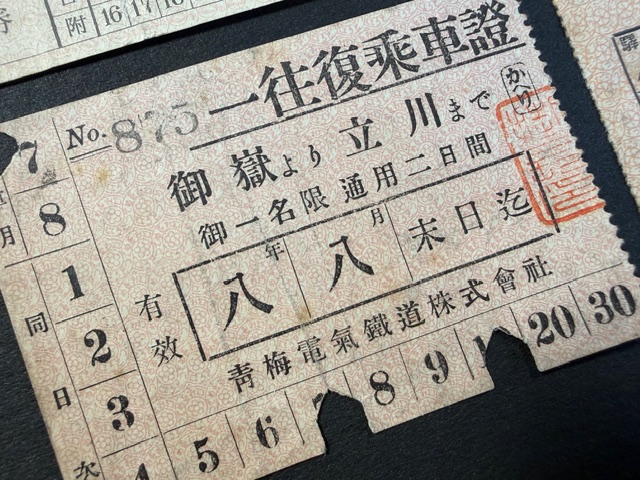 券
附 16 17 18
No. 875
一往復乘車證
かへり
御嶽より立川まで
御一名限通用二日間
有效
八年八月末日迄
靑梅電氣鐵道株式會社
7
8
月
同日次
1
2
3
4
5 6 7 8 9 1 20 30